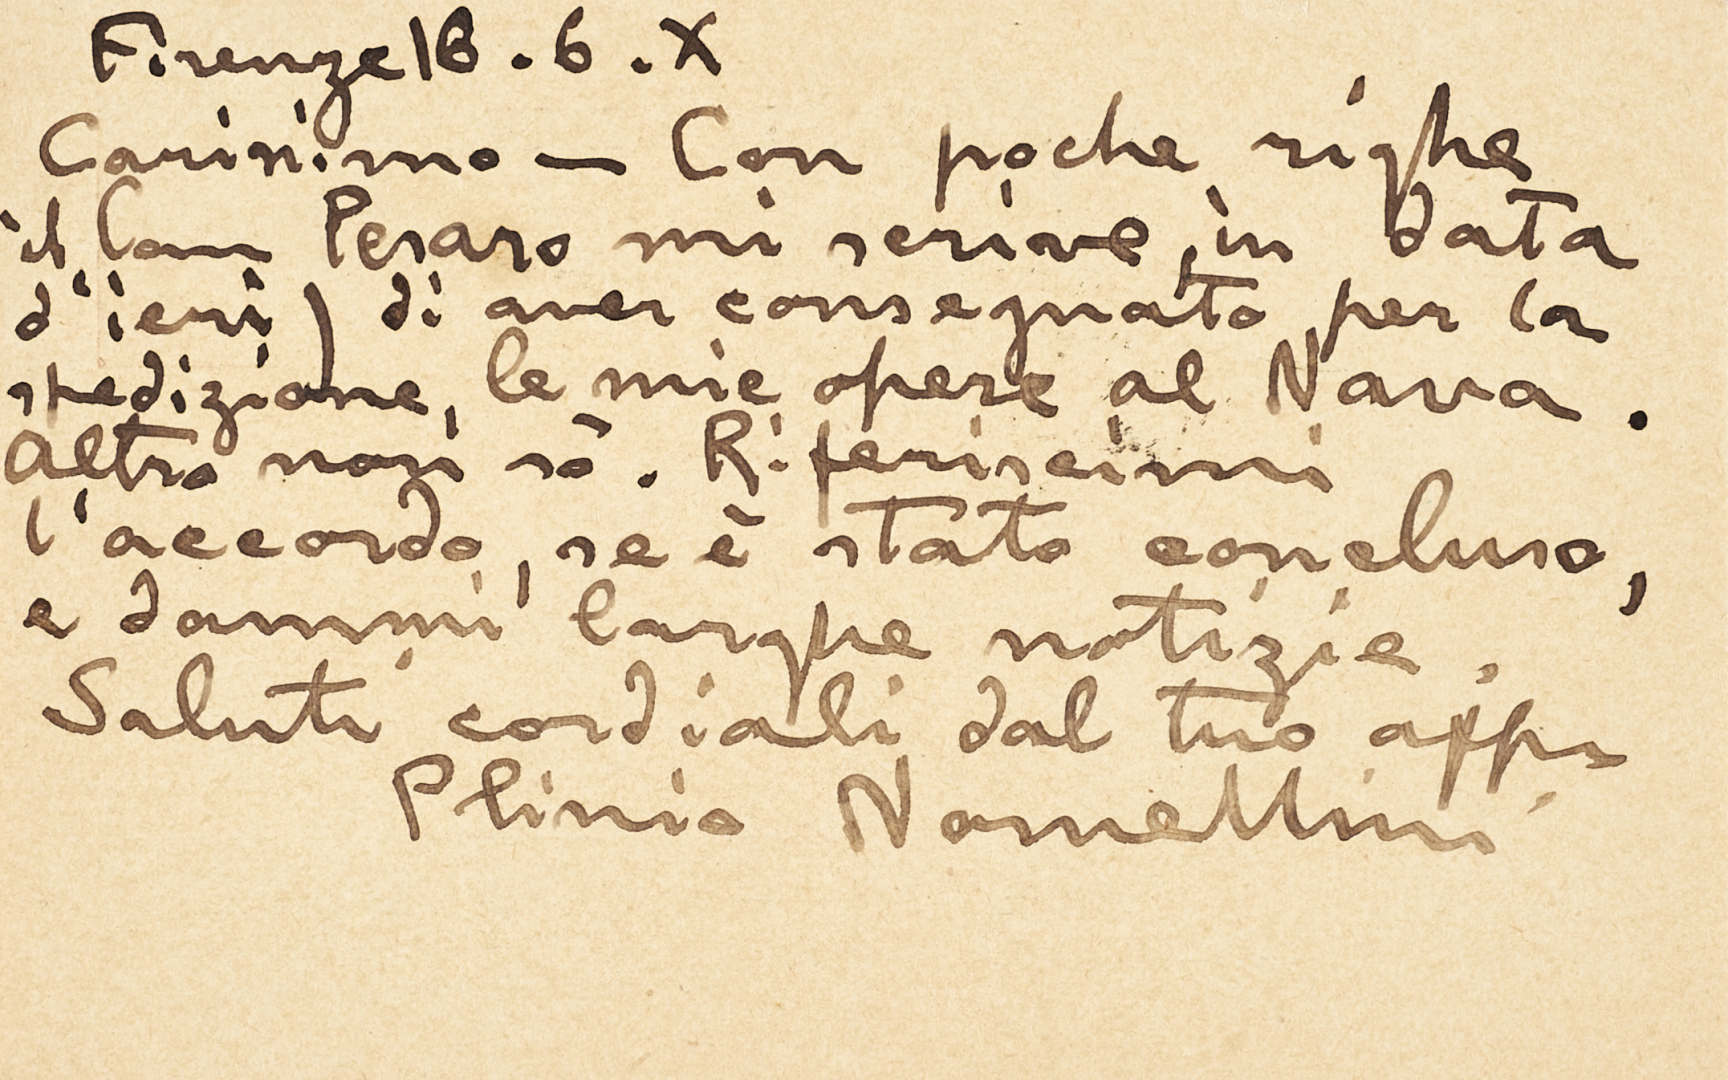 Firenze 18 . 6 . X
Carissimo — Con poche righe
il Com Pesaro mi scrive, in data
d'ieri) di aver consegnato, per la
spedizione, le mie opere al Nava .
Altro non sò . Riferiscimi
l'accordo, se è stato concluso,
e dammi larghe notizie .
Saluti cordiali dal tuo affm
Plinio Nomellini